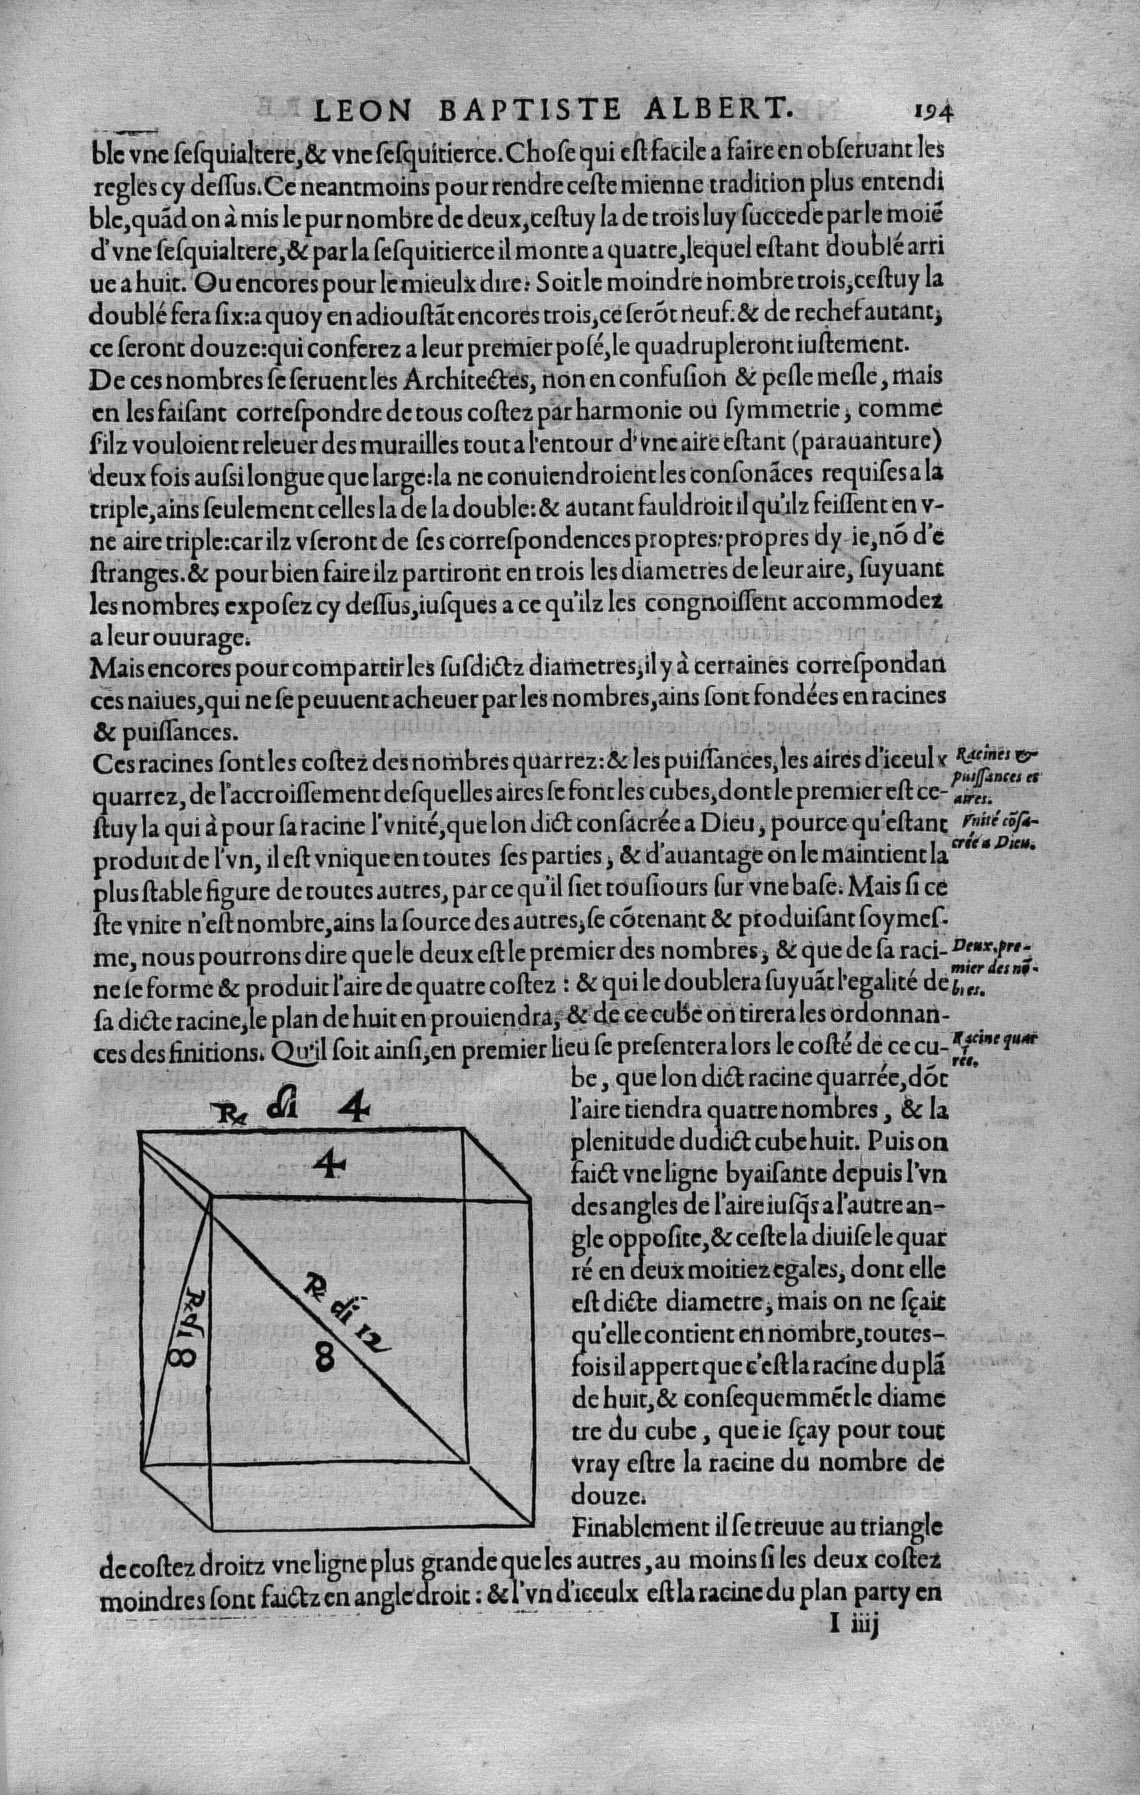 LEON BAPTISTE ALBERT. 194
ble vne ſeſquialtere, & vne ſeſquitierce. Choſe qui eſt facile a faire en obſeruant les
regles cy deſſus. Ce neantmoins pour rendre ceſte mienne tradition plus entendi
ble, quãd on à mis le pur nombre de deux, ceſtuy la de trois luy ſuccede par le moiẽ
d'vne ſeſquialtere, & par la ſeſquitierce il monte a quatre, lequel eſtant doublé arri
ue a huit. Ou encores pour le mieulx dire: Soit le moindre nombre trois, ceſtuy la
doublé fera ſix: a quoy en adiouſtãt encores trois, ce ſerõt neuf: & de rechef autant,
ce ſeront douze: qui conferez a leur premier poſé, le quadrupleront iuſtement.
De ces nombres ſe ſeruent les Architectes, non en confuſion & peſle meſle, mais
en les faiſant correſpondre de tous coſtez par harmonie ou ſymmetrie, comme
ſilz vouloient releuer des murailles tout a l'entour d'vne aire eſtant (parauanture)
deux fois auſsi longue que large: la ne conuiendroient les conſonãces requiſes a la
triple, ains ſeulement celles la de la double: & autant fauldroit il qu'ilz feiſſent en v-
ne aire triple: car ilz vſeront de ſes correſpondences propres: propres dy-ie, nõ d'e
ſtranges. & pour bien faire ilz partiront en trois les diametres de leur aire, ſuyuant
les nombres expoſez cy deſſus, iuſques a ce qu'ilz les congnoiſſent accommodez
a leur ouurage.
Mais encores pour compartir les ſuſdictz diametres, il y à certaines correſpondan
ces naiues, qui ne ſe peuuent acheuer par les nombres, ains ſont fondées en racines
& puiſſances.
Ces racines ſont les coſtez des nombres quarrez: & les puiſſances, les aires d'iceulx
Racines &
quarrez, de l'accroiſſement deſquelles aires ſe font les cubes, dont le premier eſt ce-
puiſſances et
aires.
ſtuy la qui à pour ſa racine l'vnité, que lon dict conſacrée a Dieu, pource qu'eſtant
Vnité cõſa-
produit de l'vn, il eſt vnique en toutes ſes parties, & d'auantage on le maintient la
crée a Dieu.
plus ſtable figure de toutes autres, par ce qu'il ſiet touſiours ſur vne baſe. Mais ſi ce
ſte vnite n'eſt nombre, ains la ſource des autres, ſe cõtenant & produiſant ſoymeſ-
me, nous pourrons dire que le deux eſt le premier des nombres, & que de ſa raci-
Deux, pre-
mier des nõ-
ne ſe forme & produit l'aire de quatre coſtez: & qui le doublera ſuyuãt l'egalité de
bres.
ſa dicte racine, le plan de huit en prouiendra, & de ce cube on tirera les ordonnan-
ces des finitions. Qu'il ſoit ainſi, en premier lieu ſe preſentera lors le coſté de ce cu-
Racine quar
rée.
be, que lon dict racine quarrée, dõt
l'aire tiendra quatre nombres, & la
plenitude dudict cube huit. Puis on
faict vne ligne byaiſante depuis l'vn
des angles de l'aire iuſq̃s a l'autre an-
gle oppoſite, & ceſte la diuiſe le quar
ré en deux moitiez egales, dont elle
eſt dicte diametre, mais on ne ſçait
qu'elle contient en nombre, toutes-
fois il appert que c'eſt la racine du plã
de huit, & conſequemmẽt le diame
tre du cube, que ie ſçay pour tout
vray eſtre la racine du nombre de
douze.
Finablement il ſe treuue au triangle
℞ di 4
4
℞ di 8
℞ di 12
8
de coſtez droitz vne ligne plus grande que les autres, au moins ſi les deux coſtez
moindres ſont faictz en angle droit: & l'vn d'iceulx eſt la racine du plan party en
I iiij